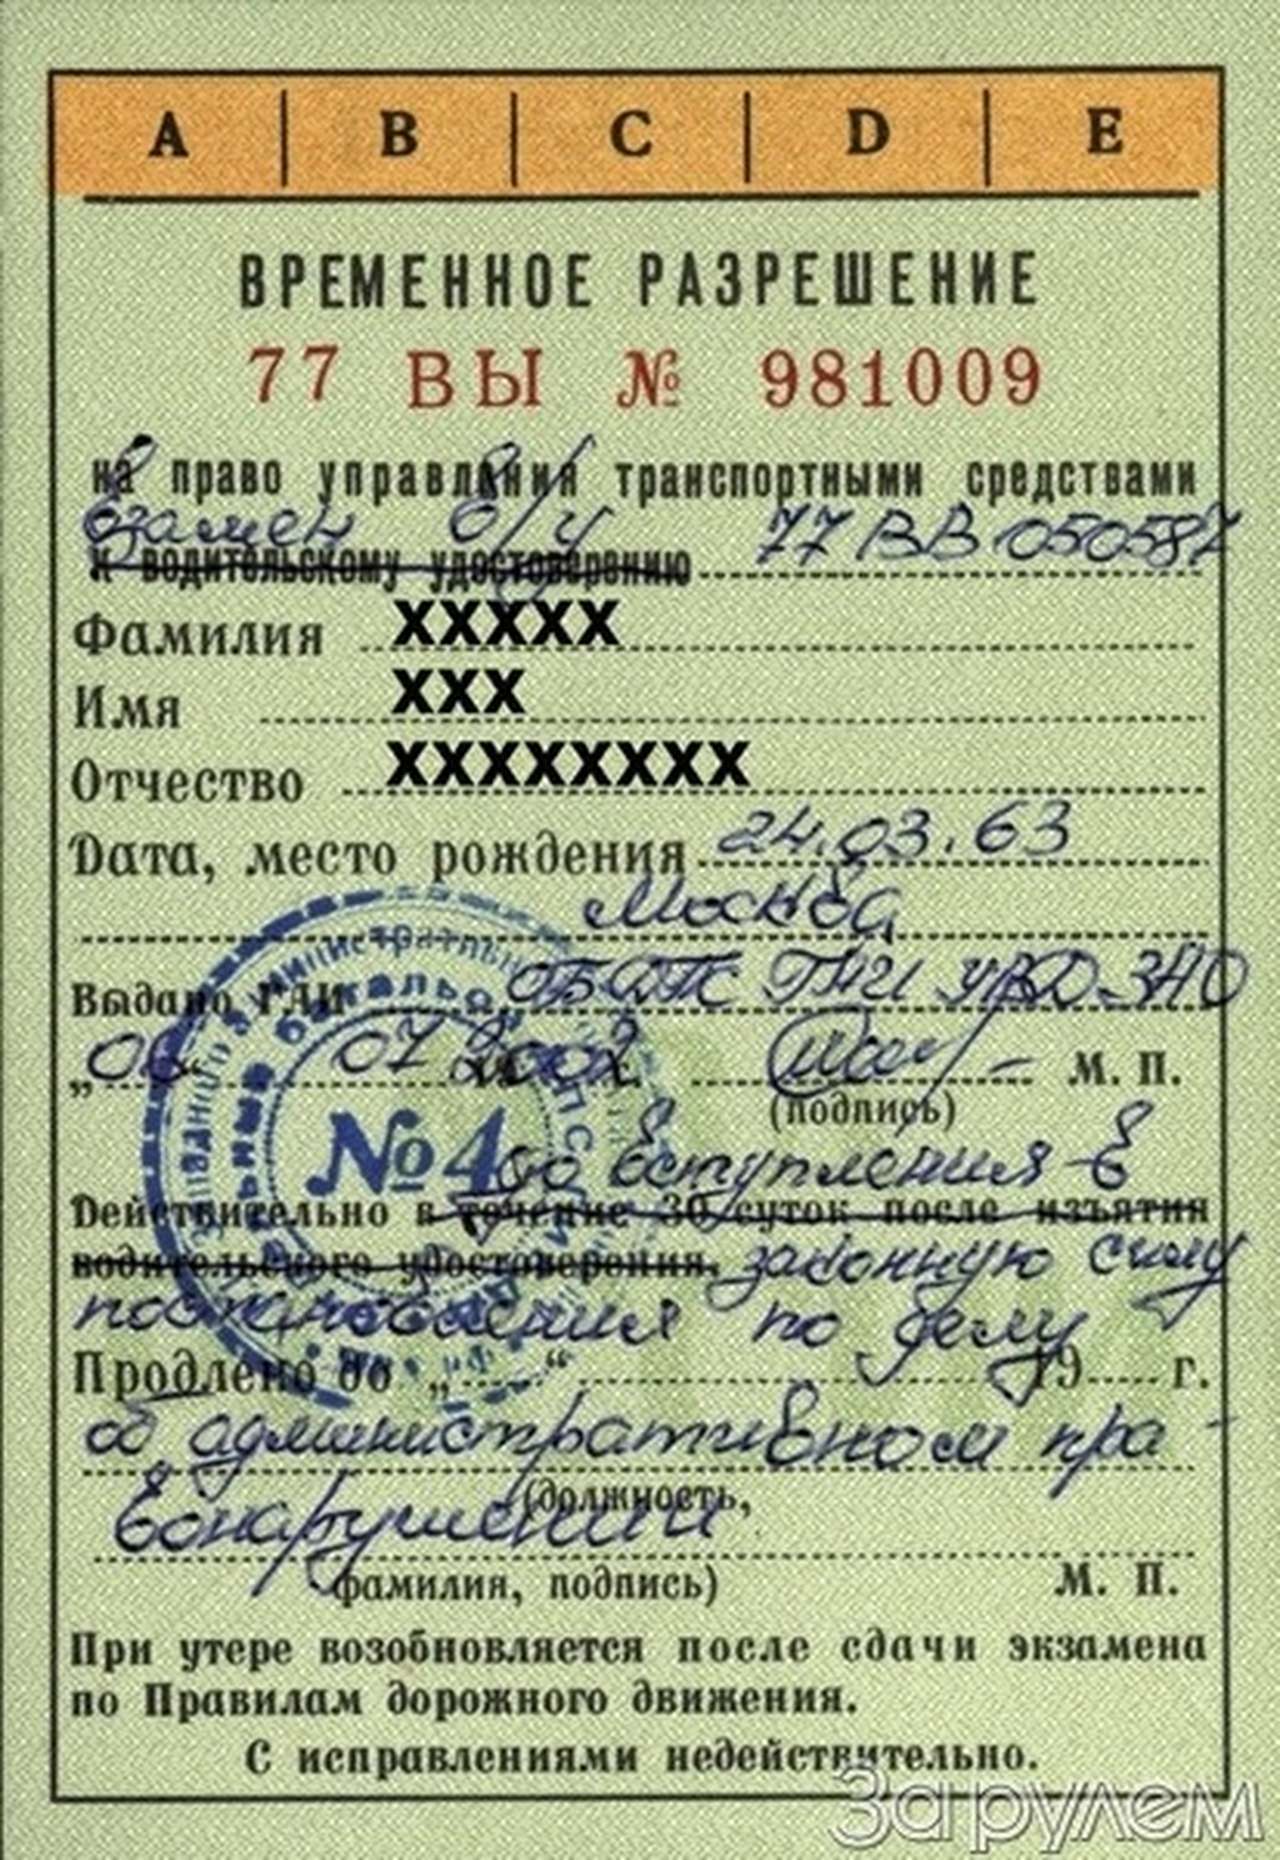 A B C D E
ВРЕМЕННОЕ РАЗРЕШЕНИЕ
77 ВЫ № 981009
на право управления транспортными средствами
взамен в/у 77 ВВ 050587
к водительскому удостоверению
Фамилия ХХХХХ
Имя ХХХ
Отчество ХХХХХХХХ
Дата, место рождения 24.03.63
Москва
Выдано ГАИ ОБ ДПС ГАИ УВД ЗАО
„ 07 2002 М. П.
(подпись)
№ 4
до вступления в
Действительно в течение 30 суток после изъятия
водительского удостоверения. законную силу
постановления по делу
Продлено до „ “ 19 г.
об административном пра-
(должность,
вонарушении
фамилия, подпись) М. П.
При утере возобновляется после сдачи экзамена
по Правилам дорожного движения.
С исправлениями недействительно.
За рулем